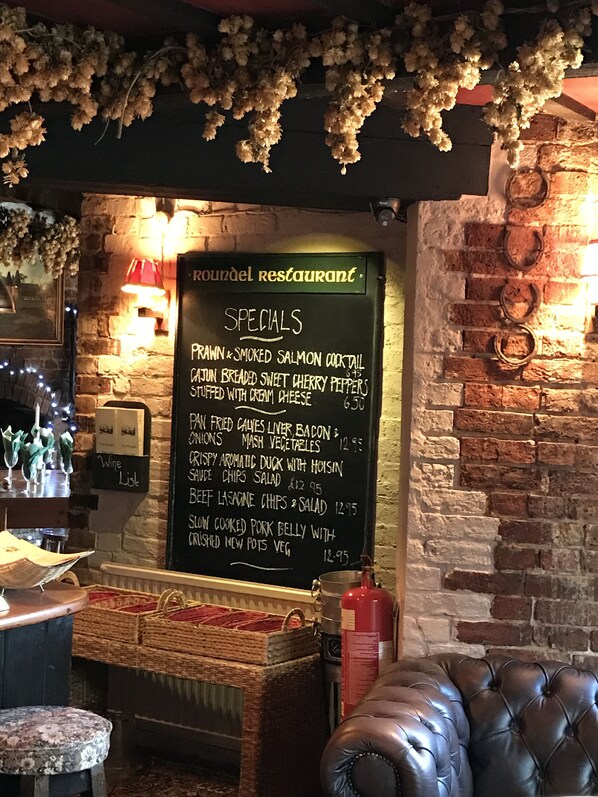 Roundel Restaurant
SPECIALS
PRAWN & SMOKED SALMON COCKTAIL
CAJUN BREADED SWEET CHERRY PEPPERS
STUFFED WITH CREAM CHEESE 6.50
PAN FRIED CALVES LIVER BACON &
ONIONS MASH VEGETABLES 12.95
CRISPY AROMATIC DUCK WITH HOISIN
SAUCE CHIPS SALAD £12.95
BEEF LASAGNE CHIPS & SALAD 12.95
SLOW COOKED PORK BELLY WITH
CRUSHED NEW POTS VEG 12.95
Wine
List